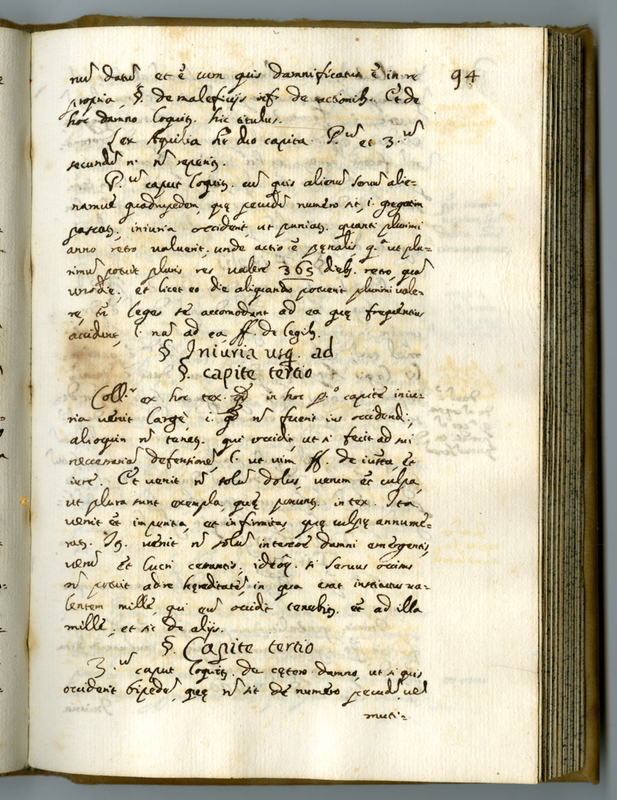 94
nū datū et ē cum quis damnificatus ē in re
propria, §. de maleficijs inf. de actionib. Et de
hoc damno loquit. hic titulus.
Lex Aquilia ht duo capita. P.ū et 3.ū
secundū n. nō reperit.
P.ū caput loquit. cū quis alienū servū alie-
namue quadrupedem, quę pecudū numero sit, i. gregatim
pascat, iniuria occiderit, ut puniat. quanti plurimi
anno retro valuerit, unde actio ē pęnalis q.a ut plu-
rimū potuit pluris res valere 365 dieb. retro, quā
et licet eo die aliquando potuerit plurimi vale-
re, tn̄ leges se accomodant ad ea quę frequentius
accidunt, l. nā ad ea, ff. de legib.
§ Iniuria usq. ad
§. capite tertio
Coll.r ex hoc tex. qd in hoc p.o capite iniu-
ria venit large i. qd nō fuerit ius occidendi,
alioquin nō tenet. qui occidit, ut si fecit ad sui
necessariā defensionē, l. ut vim ff. de iusta et
iure. Et venit nō solū dolus, verum et culpa,
ut plura sunt exempla, quę ponunt. in tex. Ita
venit et imperitia, et infirmitas, quę culpę annume-
rat. It. venit nō solū interesse damni emergentis,
verū et lucri cessantis, ideoq. si servus occisus
nō potuit adire hęreditatē in qua erat institutus va-
lentem mille, qui eū occidit tenebit. et ad illa
mille, et sic de alijs.
§. Capite tertio
3.ū caput loquit. de cętero damno, ut si quis
occiderit bipedē, quę nō sit de numero pecudū vel
muti-